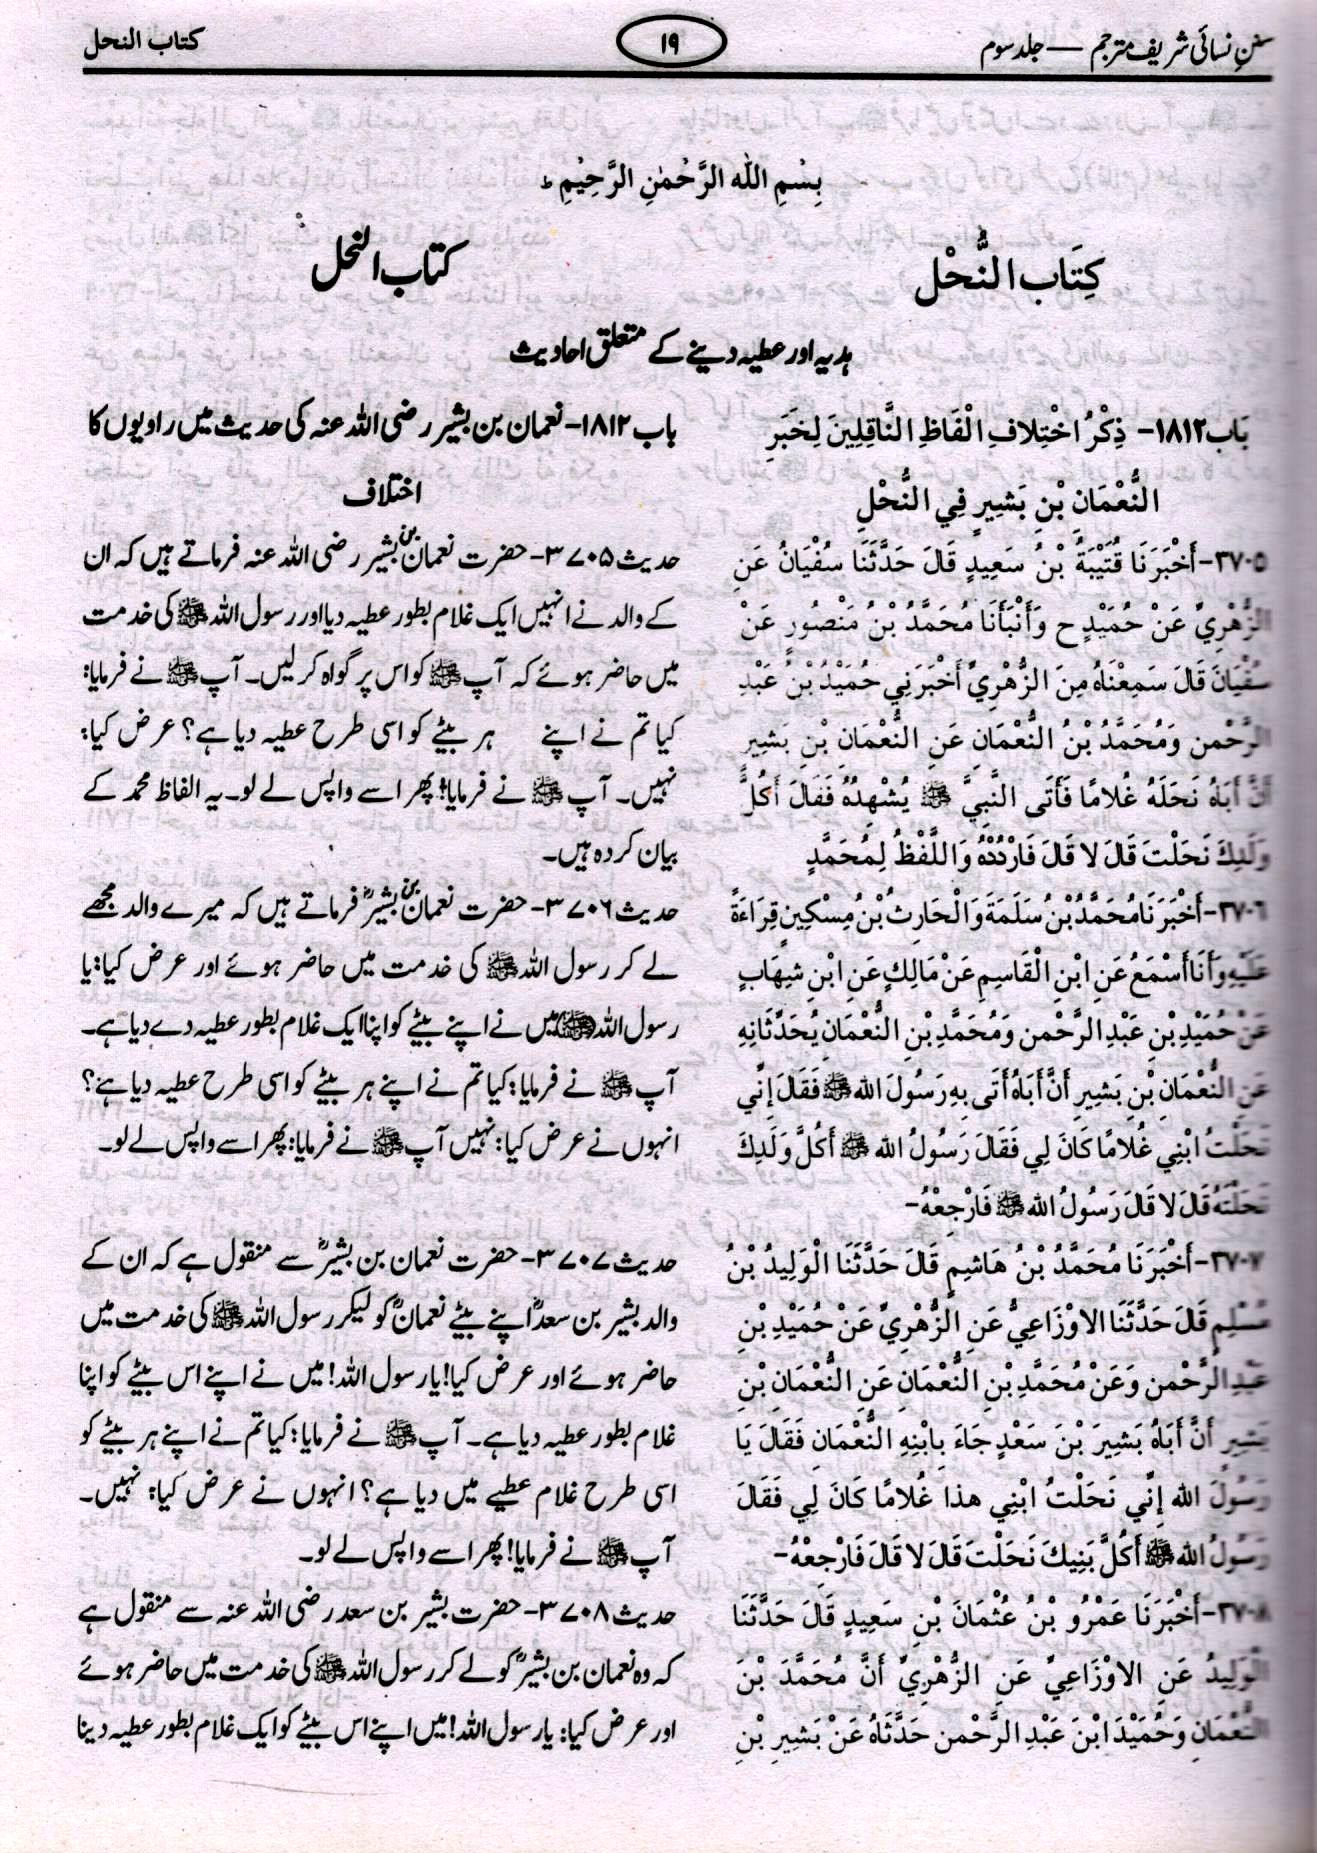 سنن نسائی شریف مترجم — جلد سوم
۱۹
کتاب النحل
بِسْمِ اللهِ الرَّحْمٰنِ الرَّحِيْمِ ط
كِتَاب النُّحْل
کتاب النحل
ہدیہ اور عطیہ دینے کے متعلق احادیث
بَاب ۱۸۱۲- ذِكْرُ اخْتِلافِ الْفَاظِ النَّاقِلِينَ لِخَبَرِ
النُّعْمَانِ بْنِ بَشِيرٍ فِي النُّحْلِ
۳۷۰۵- أَخْبَرَنَا قُتَيْبَةُ بْنُ سَعِيدٍ قَالَ حَدَّثَنَا سُفْيَانُ عَنِ
الزُّهْرِيِّ عَنْ حُمَيْدٍ ح وَأَنْبَأَنَا مُحَمَّدُ بْنُ مَنْصُورٍ عَنْ
سُفْيَانَ قَالَ سَمِعْنَاهُ مِنَ الزُّهْرِيِّ أَخْبَرَنِي حُمَيْدُ بْنُ عَبْدِ
الرَّحْمنِ وَمُحَمَّدُ بْنُ النُّعْمَانِ عَنِ النُّعْمَانِ بْنِ بَشِيرٍ
أَنَّ أَبَاهُ نَحَلَهُ غُلامًا فَأَتَى النَّبِيَّ ﷺ يُشْهِدُهُ فَقَالَ أَكُلَّ
وَلَدِكَ نَحَلْتَ قَالَ لا قَالَ فَارْدُدْهُ وَاللَّفْظُ لِمُحَمَّدٍ
۳۷۰۶- أَخْبَرَنَا مُحَمَّدُ بْنُ سَلَمَةَ وَالْحَارِثُ بْنُ مِسْكِينٍ قِرَاءَةً
عَلَيْهِ وَأَنَا أَسْمَعُ عَنِ ابْنِ الْقَاسِمِ عَنْ مَالِكٍ عَنِ ابْنِ شِهَابٍ
عَنْ حُمَيْدِ بْنِ عَبْدِ الرَّحْمنِ وَمُحَمَّدِ بْنِ النُّعْمَانِ يُحَدِّثَانِهِ
عَنِ النُّعْمَانِ بْنِ بَشِيرٍ أَنَّ أَبَاهُ أَتَى بِهِ رَسُولَ اللهِ ﷺ فَقَالَ إِنِّي
نَحَلْتُ ابْنِي غُلامًا كَانَ لِي فَقَالَ رَسُولُ اللهِ ﷺ أَكُلَّ وَلَدِكَ
نَحَلْتَهُ قَالَ لا قَالَ رَسُولُ اللهِ ﷺ فَارْجِعْهُ-
۳۷۰۷- أَخْبَرَنَا مُحَمَّدُ بْنُ هَاشِمٍ قَالَ حَدَّثَنَا الْوَلِيدُ بْنُ
مُسْلِمٍ قَالَ حَدَّثَنَا الاوْزَاعِيُّ عَنِ الزُّهْرِيِّ عَنْ حُمَيْدِ بْنِ
عَبْدِ الرَّحْمنِ وَعَنْ مُحَمَّدِ بْنِ النُّعْمَانِ عَنِ النُّعْمَانِ بْنِ
بَشِيرٍ أَنَّ أَبَاهُ بَشِيرَ بْنَ سَعْدٍ جَاءَ بِابْنِهِ النُّعْمَانِ فَقَالَ يَا
رَسُولَ اللهِ إِنِّي نَحَلْتُ ابْنِي هذا غُلامًا كَانَ لِي فَقَالَ
رَسُولُ اللهِ ﷺ أَكُلَّ بَنِيكَ نَحَلْتَ قَالَ لا قَالَ فَارْجِعْهُ-
۳۷۰۸- أَخْبَرَنَا عَمْرُو بْنُ عُثْمَانَ بْنِ سَعِيدٍ قَالَ حَدَّثَنَا
الْوَلِيدُ عَنِ الاوْزَاعِيِّ عَنِ الزُّهْرِيِّ أَنَّ مُحَمَّدَ بْنَ
النُّعْمَانِ وَحُمَيْدَ ابْنَ عَبْدِ الرَّحْمنِ حَدَّثَاهُ عَنْ بَشِيرِ بْنِ
باب ۱۸۱۲- نعمان بن بشیر رضی اللہ عنہ کی حدیث میں راویوں کا
اختلاف
حدیث ۳۷۰۵- حضرت نعمان بن بشیر رضی اللہ عنہ فرماتے ہیں کہ ان
کے والد نے انہیں ایک غلام بطور عطیہ دیا اور رسول اللہ ﷺ کی خدمت
میں حاضر ہوئے کہ آپ ﷺ کو اس پر گواہ کرلیں۔ آپ ﷺ نے فرمایا:
کیا تم نے اپنے ہر بیٹے کو اسی طرح عطیہ دیا ہے؟ عرض کیا:
نہیں۔ آپ ﷺ نے فرمایا! پھر اسے واپس لے لو۔ یہ الفاظ محمد کے
بیان کردہ ہیں۔
حدیث ۳۷۰۶- حضرت نعمان بن بشیرؓ فرماتے ہیں کہ میرے والد مجھے
لے کر رسول اللہ ﷺ کی خدمت میں حاضر ہوئے اور عرض کیا: یا
رسول اللہ (ﷺ) میں نے اپنے بیٹے کو اپنا ایک غلام بطور عطیہ دے دیا ہے۔
آپ ﷺ نے فرمایا: کیا تم نے اپنے ہر بیٹے کو اسی طرح عطیہ دیا ہے؟
انہوں نے عرض کیا: نہیں آپ ﷺ نے فرمایا: پھر اسے واپس لے لو۔
حدیث ۳۷۰۷- حضرت نعمان بن بشیرؓ سے منقول ہے کہ ان کے
والد بشیر بن سعدؓ اپنے بیٹے نعمانؓ کو لیکر رسول اللہ ﷺ کی خدمت میں
حاضر ہوئے اور عرض کیا! یا رسول اللہ! میں نے اپنے اس بیٹے کو اپنا
غلام بطور عطیہ دیا ہے۔ آپ ﷺ نے فرمایا: کیا تم نے اپنے ہر بیٹے کو
اسی طرح غلام عطیے میں دیا ہے؟ انہوں نے عرض کیا: نہیں۔
آپ ﷺ نے فرمایا! پھر اسے واپس لے لو۔
حدیث ۳۷۰۸- حضرت بشیر بن سعد رضی اللہ عنہ سے منقول ہے
کہ وہ نعمان بن بشیرؓ کو لے کر رسول اللہ ﷺ کی خدمت میں حاضر ہوئے
اور عرض کیا: یا رسول اللہ! میں اپنے اس بیٹے کو ایک غلام بطور عطیہ دینا